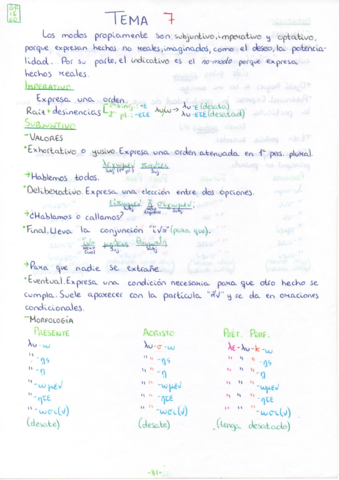 TEMA 7
Los modos propiamente son subjuntivo, imperativo y optativo,
porque expresan hechos no reales, imaginados, como el deseo, la potencia-
lidad. Por su parte, el indicativo es el no-modo porque expresa
hechos reales.
IMPERATIVO
Expresa una orden.
Raíz + desinencias 2ª sing: -ε λύω → λυ-ε (desata)
2ª pl: -ετε λυ-ετε (desatad)
SUBJUNTIVO
-VALORES
*Exhortativo o yusivo. Expresa una orden atenuada en 1ª pos. plural.
→Hablemos todos.
*Deliberativo. Expresa una elección entre dos opciones.
→¿Hablamos o callamos?
*Final. Lleva la conjunción "ἵνα" (para que).
→Para que nadie se extrañe.
*Eventual. Expresa una condición necesaria para que otro hecho se
cumpla. Suele aparecer con la partícula "ἄν" y se da en oraciones
condicionales.
-MORFOLOGÍA
PRESENTE AORISTO PRET. PERF.
λυ-ω λυ-σ-ω λε-λυ-κ-ω
" -ῃς " " -ῃς " " " -ῃς
" -ῃ " " -ῃ " " " -ῃ
" -ωμεν " " -ωμεν " " " -ωμεν
" -ητε " " -ητε " " " -ητε
" -ωσι(ν) " " -ωσι(ν) " " " -ωσι(ν)
(desate) (desate) (tenga desatado)
-31-